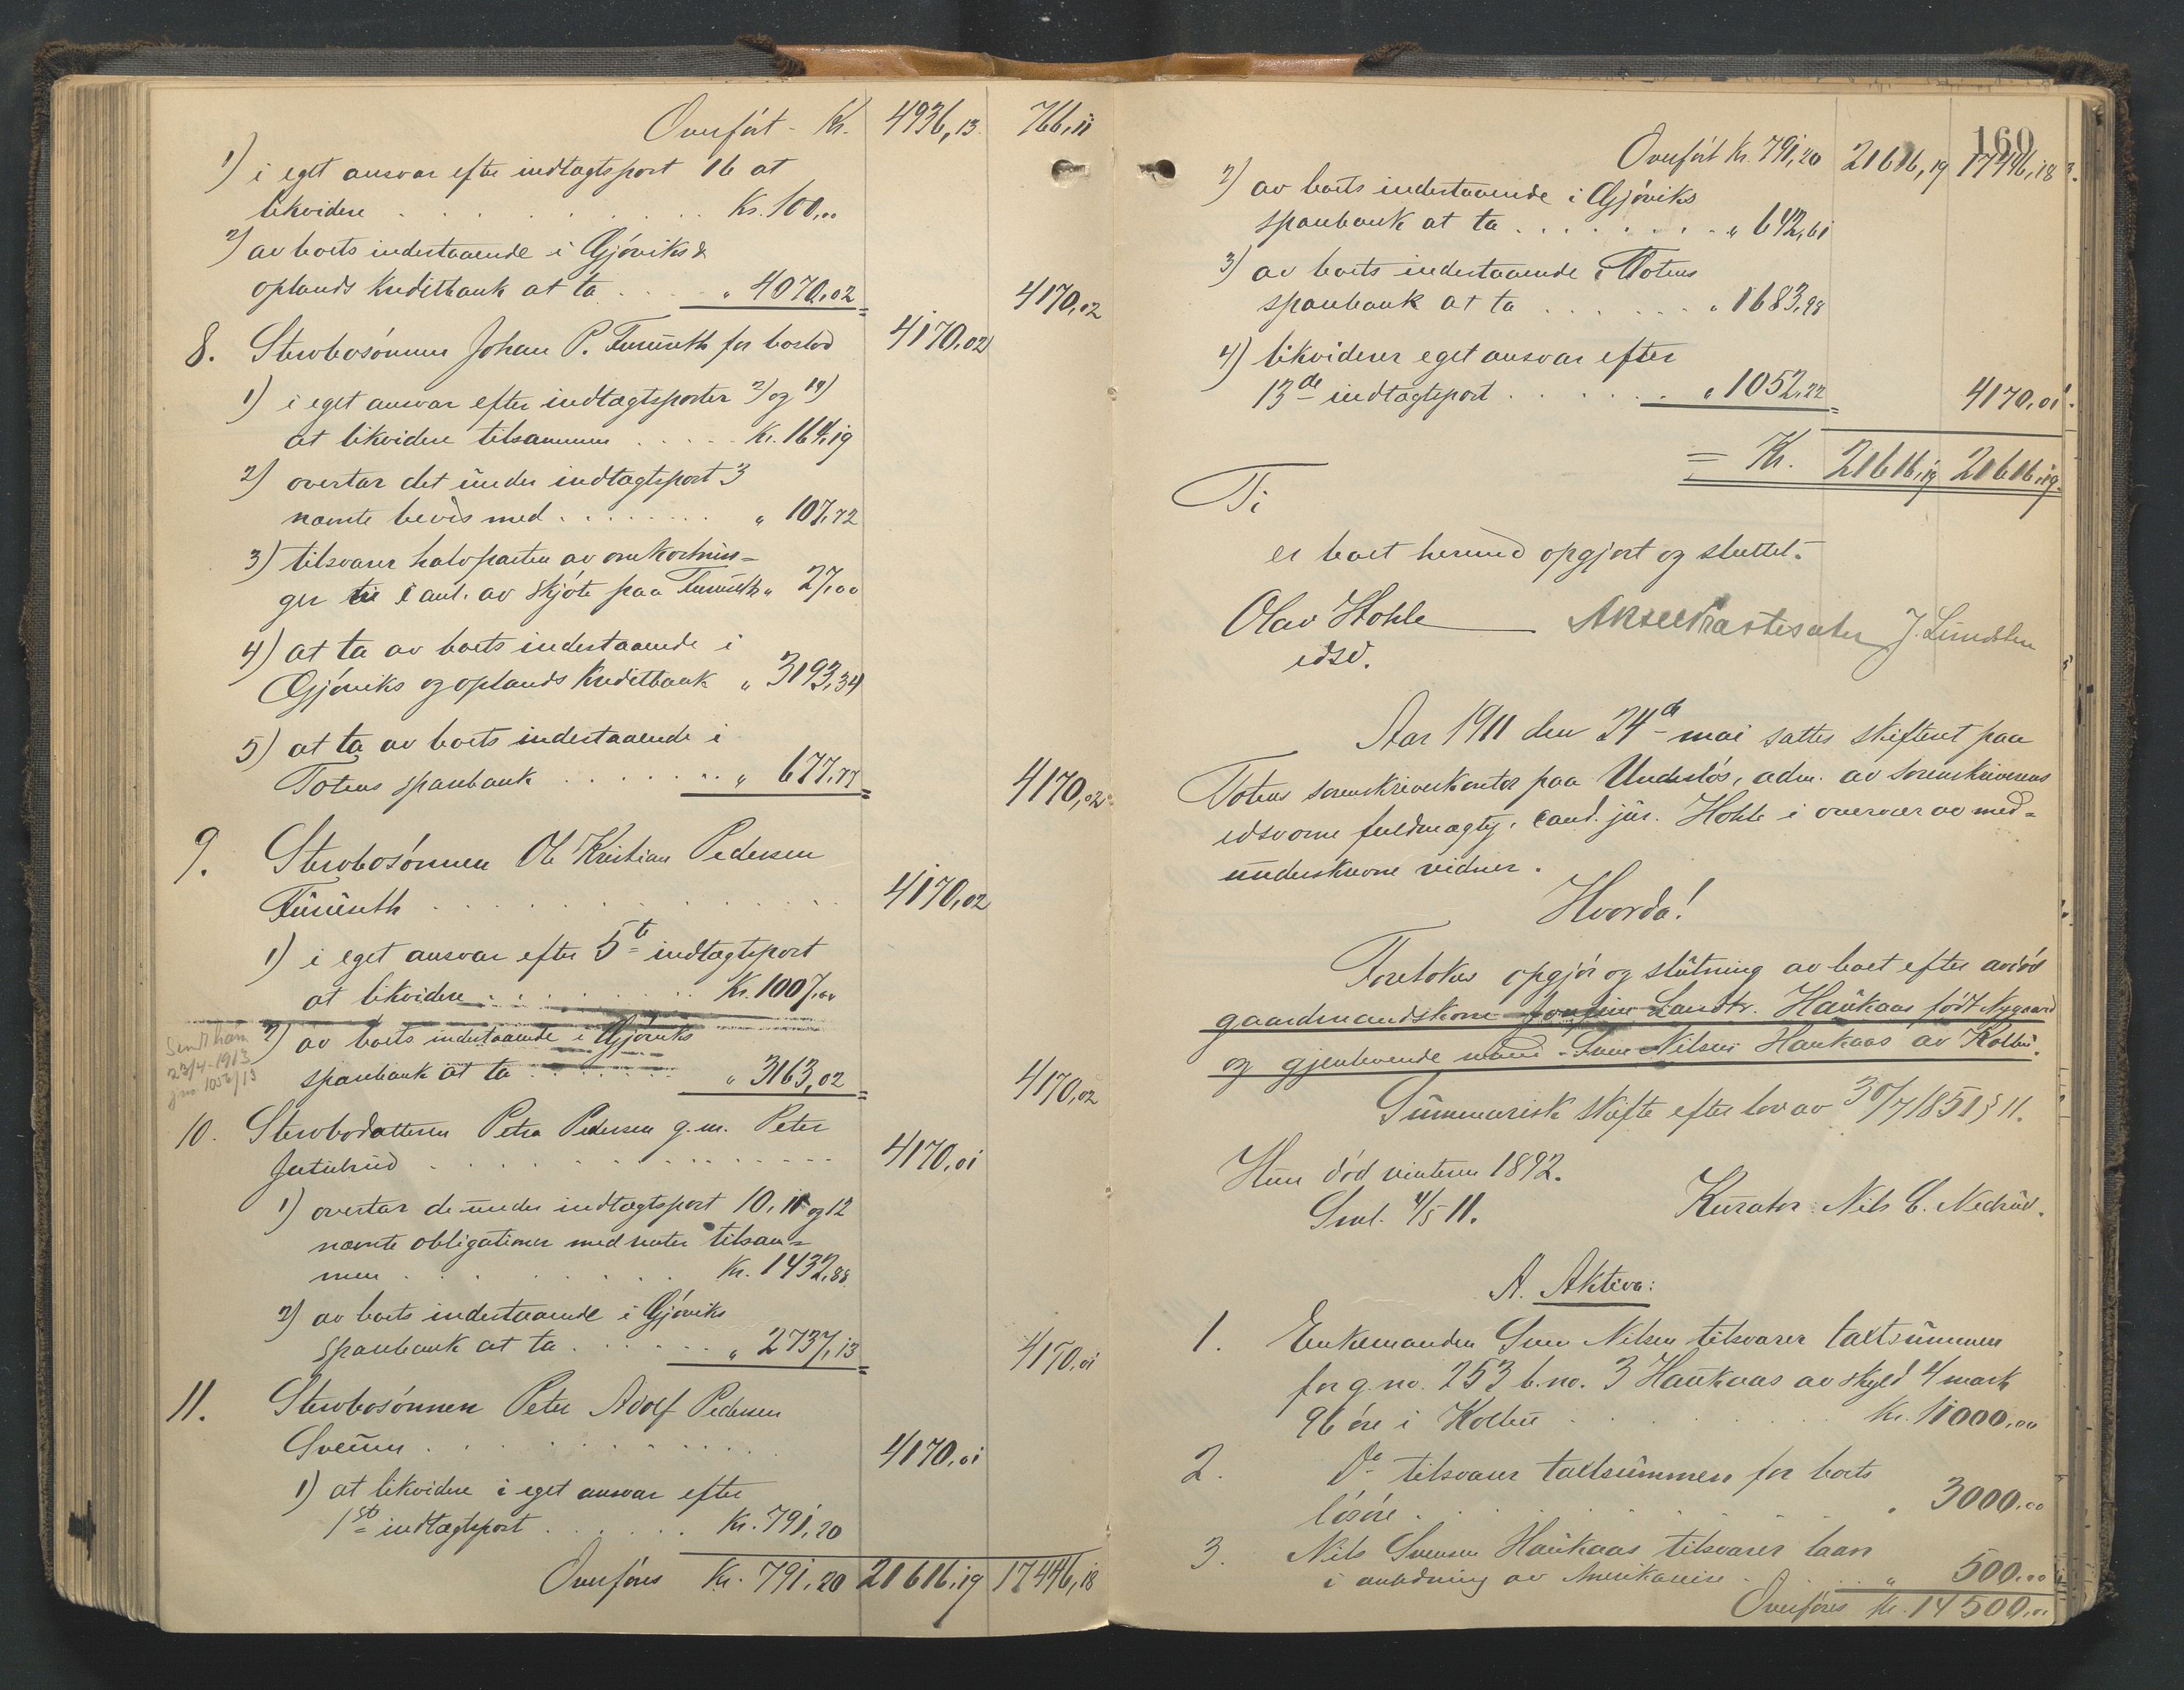 Overført - Kr. 4936,13 766,11
1) i eget ansvar efter indtægtspost 16 at
likvidere . . . Kr. 100,00
2) av boets indestaaende i Gjøviks &
oplands kreditbank at ta . . . " 4070,02 4170,02
8. Sterbosønnen Johan P. Furuseth for boslod 4170,02
1) i eget ansvar efter indtægtsposter 2) og 19)
at likvidere tilsammen . . . Kr. 164,19
2) overtar det under indtægtspost 3
nævnte bevis med . . . " 107,72
3) tilsvarer halvparten av omkostnin=
ger i anl. av skjøte paa Furuseth " 27,00
4) at ta av boets indestaaende i
Gjøviks og oplands kreditbank " 3193,34
5) at ta av boets indestaaende i
Totens sparebank . . . " 677,77 4170,02
9. Sterbosønnen Ole Kristian Pedersen
Furuseth . . . 4170,02
1) i eget ansvar efter 5te indtægtspost
at likvidere . . . Kr. 1007,00
2) av boets indestaaende i Gjøviks
Sendt ham
23/4-1913
jno 1056/13
sparebank at ta . . . " 3163,02 4170,02
10. Sterbodatteren Petra Pedersen g.m. Peter
. . . 4170,01
1) overtar de under indtægtspost 10, 11 og 12
nævnte obligationer med renter tilsam=
men . . . Kr. 1432,88
2) av boets indestaaende i Gjøviks
sparebank at ta . . . " 2737,13 4170,01
11. Sterbosønnen Peter Adolf Pedersen
. . . 4170,01
1) at likvidere i eget ansvar efter
1ste indtægtspost . . . Kr. 791,20
Overføres Kr. 791,20 21616,19 17446,18
160
Overført Kr. 791,20 21616,19 17446,18
2) av boets indestaaende i Gjøviks
sparebank at ta . . . " 642,61
3) av boets indestaaende i Totens
sparebank at ta . . . " 1683,98
4) likviderer eget ansvar efter
13de indtægtspost . . . " 1052,22 4170,01
= Kr. 21616,19 21616,19
Ti
er boet hermed opgjort og sluttet.
Olav Hohle Aksel J. Lundsten
edsv.
Aar 1911 den 24de mai sattes skifteret paa
Totens sorenskriverkontor paa Underløs, adm. av sorenskriverens
edsvorne fuldmægtig, cand. jur. Hohle i overvær av med=
underskrevne vidner.
Hvorda!
Foretokes opgjør og slutning av boet efter avdød
gaardmandskone Josefine Lauritz. Haukaas født Nygaard
og gjenlevende mand Sven Nilsen Haukaas av Kolbu.
Summarisk skifte efter lov av 30/7 1851 § 11.
Hun død vinteren 1892.
Sml. 4/5 11. Kurator: Nils C. Nedrud.
A. Aktiva:
1. Enkemanden Sven Nilsen tilsvarer taxtsummen
for g.no. 253 b.no. 3 Haukaas av skyld 4 mark
96 øre i Kolbu . . . Kr. 11000,00
2. Do tilsvarer taxtsummen for boets
løsøre . . . " 3000,00
3. Nils Svensen Haukaas tilsvarer laan
i anledning av Amerikareise . . . " 500,00
Overføres Kr. 14500,00